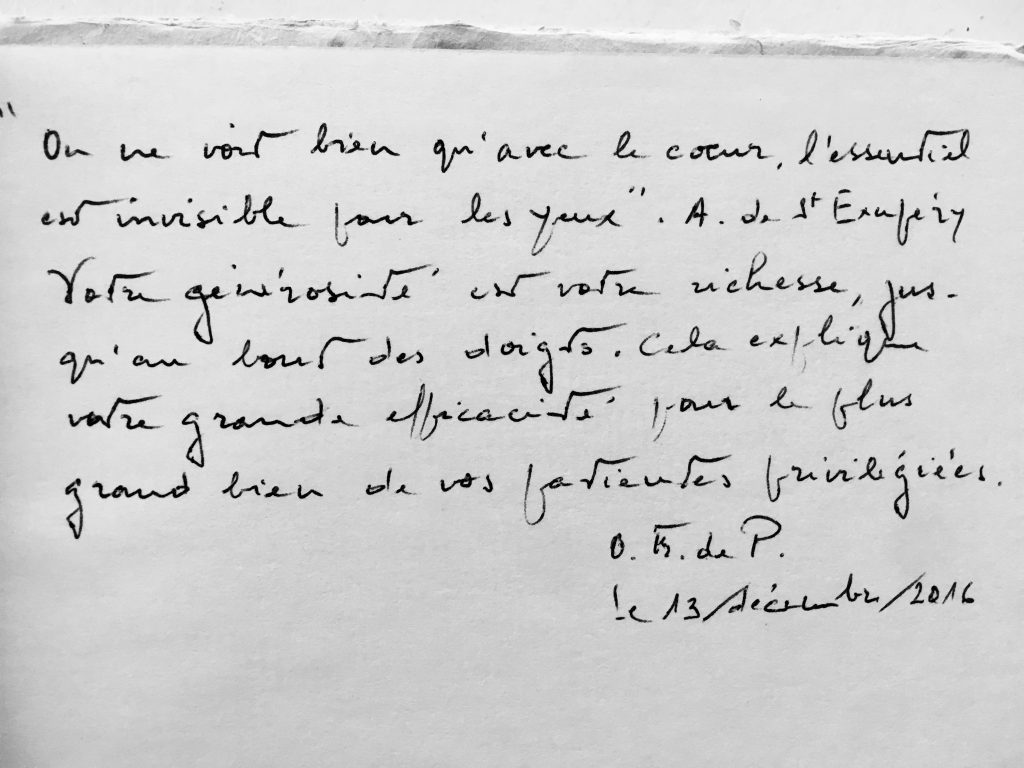 "On ne voit bien qu'avec le cœur, l'essentiel
est invisible pour les yeux". A. de St Exupéry
Votre générosité est votre richesse, jus-
qu'au bout des doigts. Cela explique
votre grande efficacité pour le plus
grand bien de vos patientes privilégiées.
O. de P.
le 13/décembre/2016